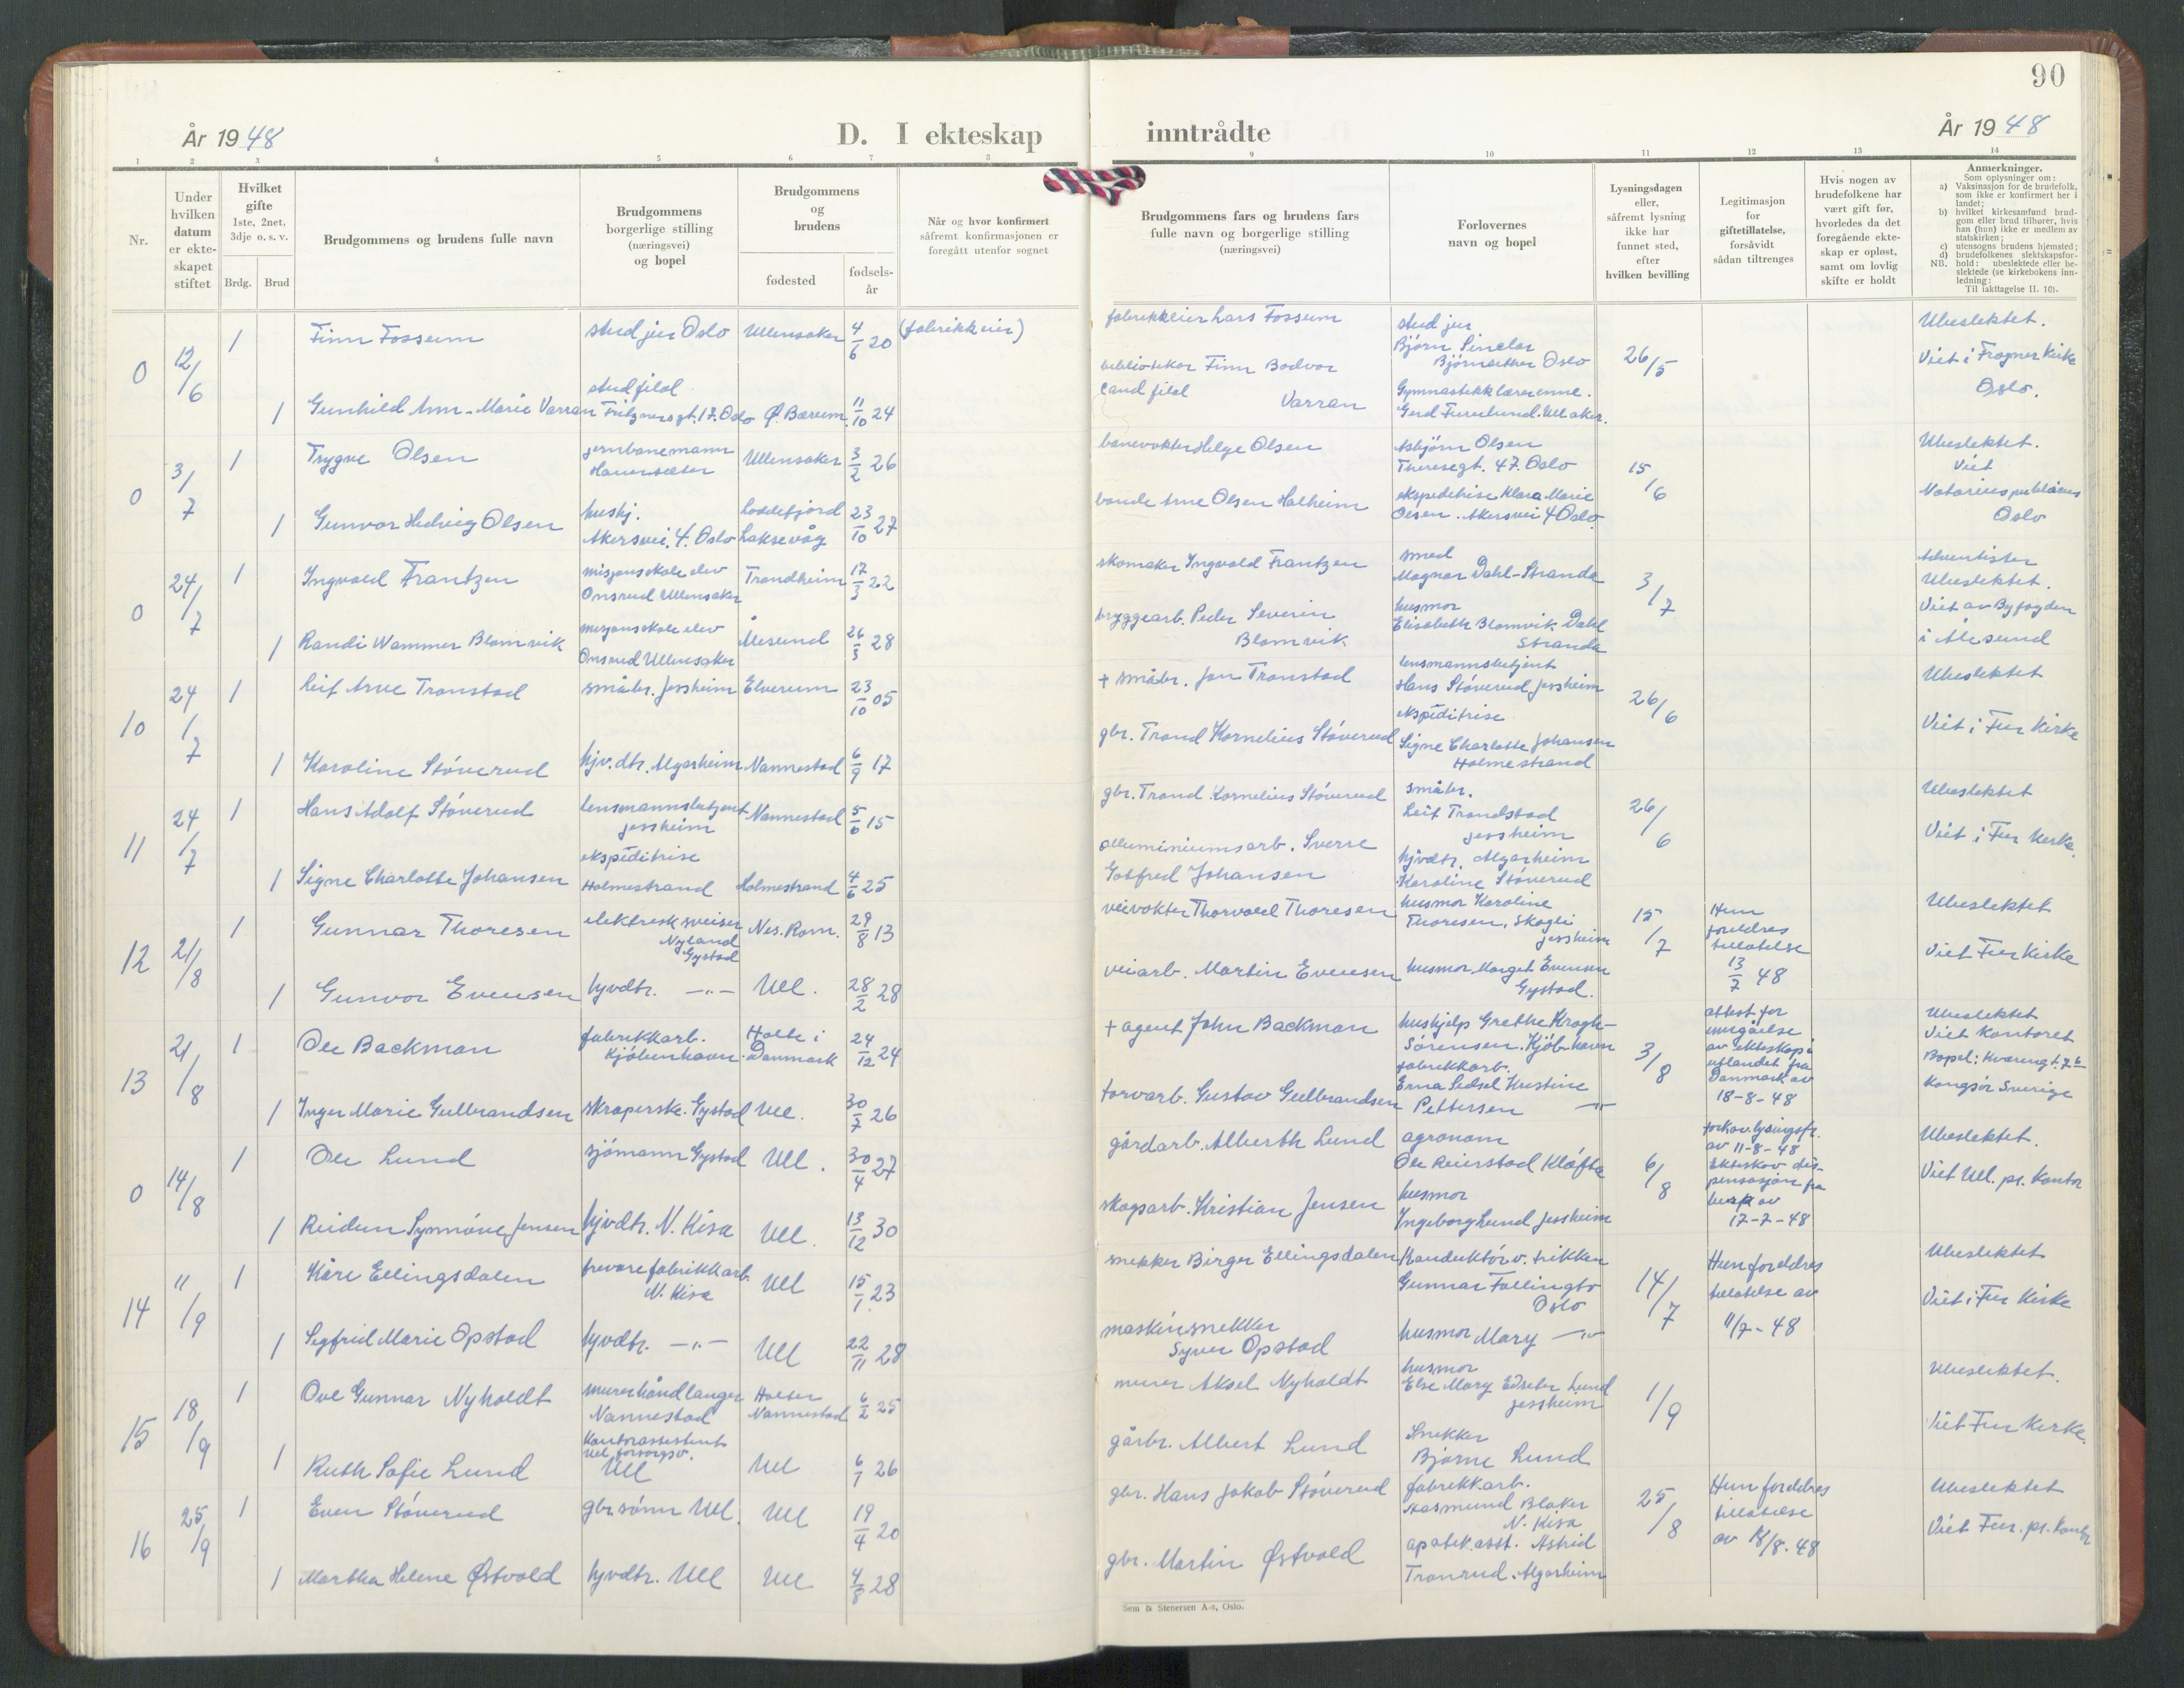 90
År 1948
D. I ekteskap
inntrådte
År 1948
1 2 3 4 5 6 7 8 9 10 11 12 13 14
Nr.
Under hvilken datum er ekte-skapet stiftet
Hvilket gifte
1ste, 2net, 3dje o. s. v.
Brdg. Brud
Brudgommens og brudens fulle navn
Brudgommens borgerlige stilling (næringsvei) og bopel
Brudgommens og brudens
fødested
fødsels-år
Når og hvor konfirmert såfremt konfirmasjonen er foregått utenfor sognet
Brudgommens fars og brudens fars fulle navn og borgerlige stilling (næringsvei)
Forlovernes navn og bopel
Lysningsdagen eller, såfremt lysning ikke har funnet sted, efter hvilken bevilling
Legitimasjon for giftetillatelse, forsåvidt sådan tiltrenges
Hvis nogen av brudefolkene har vært gift før, hvorledes da det foregående ekte-skap er opløst, samt om lovlig skifte er holdt
Anmerkninger.
Som oplysninger om:
a) Vaksinasjon for de brudefolk, som ikke er konfirmert her i landet;
b) hvilket kirkesamfund brud-gom eller brud tilhører, hvis han (hun) ikke er medlem av statskirken;
c) utensogns brudens hjemsted;
d) brudefolkenes slektskapsfor-hold: ubeslektede eller be-slektede (se kirkebokens inn-ledning:
NB. Til iakttagelse II. 10).
0 12/6 1 Finn Fossum stud jur Oslo Ullensaker 4/6 20 (fabrikkeier) fabrikkeier Lars Fossum stud jur Bjørn Sinclar Bjørnsether Oslo 26/5 Ubeslektet.
Viet i Frogner Kirke Oslo.
1 Gunhild Ann-Marie Varran stud filol Fritznersgt. 17. Oslo Ø. Bærum 11/10 24 bibliotekar Finn Bodvar cand filol Varran Gymnastikklærerinne. Gerd Furulund. Ullaker.
0 3/7 1 Trygve Olsen jernbanemann Hauerseter Ullensaker 3/2 26 banevokter Helge Olsen Asbjørn Olsen Theresegt. 47. Oslo 15/6 Ubeslektet.
Viet Notarius publicus Oslo
1 Gunvor Hedvig Olsen hushj. Akersvei. 4. Oslo Loddefjord Laksevåg 23/10 27 bonde Arne Olsen Halheim ekspeditrise Klara Marie Olsen. Akersvei 4 Oslo.
0 24/7 1 Ingvald Frantzen misjonsskole elev Onsrud Ullensaker Trondheim 17/3 22 skomaker Ingvald Frantzen smed Magnar Dahl-Stranda 3/7 Adventister Ubeslektet.
Viet av Byfogden i Ålesund
1 Randi Wammer Blomvik misjonsskole elev Onsrud Ullensaker Ålesund 26/3 28 bryggearb. Peder Severin Blomvik husmor Elisabeth Blomvik Dahl Stranda
10 24/7 1 Leif Arve Tronstad småbr. Jessheim Elverum 23/10 05 + småbr. Jon Tronstad lensmannsbetjent Hans Stöverud Jessheim 26/6 Ubeslektet
Viet i Fur Kirke
1 Karoline Stöverud hjv.dtr. Algarheim Nannestad 6/9 17 gbr. Trond Kornelius Stöverud ekspeditrise Signe Charlotte Johansen Holmestrand
11 24/7 1 Hans Adolf Stöverud lensmannsbetjent Jessheim Nannestad 5/6 15 gbr. Trond Kornelius Stöverud småbr. Leif Trondstad Jessheim 26/6 Ubeslektet
Viet i Fur Kirke.
1 Signe Charlotte Johansen ekspeditrise Holmestrand Holmestrand 4/6 25 alluminiumsarb. Sverre Gotfred Johansen hjvdtr. Algarheim Karoline Stöverud
12 21/8 1 Gunnar Thoresen elektrisk sveiser Nyland Gystad Nes. Rom. 29/8 13 veivokter Thorvald Thoresen husmor Karoline Thoresen, Skogli Jessheim 15/7 Hun foreldres tillatelse 13/7 48 Ubeslektet
Viet Fur Kirke
1 Gunvor Evensen hjvdtr. —"— Ull. 28/2 28 veiarb. Martin Evensen husmor Marget Evensen Gystad.
13 21/8 1 Ole Backman fabrikkarb. Kjöbenhavn Holte i Danmark 24/12 24 + agent John Backman hushjelp Grethe Krogh-Sörensen. Kjöb.havn 3/8 attest for inngåelse av ekteskap i utlandet fra Danmark av 18-8-48 Ubeslektet
Viet Kontoret
Bopel: Kværngt. 7 b
Kongsör Sverige
1 Inger Marie Gulbrandsen skraperske. Gystad Ull. 30/7 26 torvarb. Gustav Gulbrandsen fabrikkarb. Erna Sidsel Kristine Pettersen —"—
0 14/8 1 Ole Lund sjömann Gystad Ull. 30/4 27 gårdarb. Alberth Lund agronom Ole Reierstad Klöfta 6/8 forkov.lysingsfr. av 11-8-48 Ekteskav dis-pensasjon fra av 17-7-48 Ubeslektet.
Viet Ull. pr. Kontor
1 Reidun Synnöve Jensen hjvdtr. N. Kisa Ull. 13/12 30 skogsarb. Kristian Jensen husmor Ingeborg Lund Jessheim
14 11/9 1 Kåre Ellingsdalen trevarefabrikkarb. N. Kisa Ull 15/1 23 snekker Birger Ellingsdalen Konduktör v. trikken Gunnar Follingbo Oslo 14/7 Hun foreldres tillatelse av 11/7-48 Ubeslektet
Viet i Fur Kirke
1 Sigfrid Marie Opstad hjvdtr. —"— Ull 22/11 28 maskinsnekker Syver Opstad husmor Mary —"—
15 18/9 1 Ove Gunnar Nyholdt murerhåndlanger Nannestad Holter Nannestad 6/2 25 murer Aksel Nyholdt husmor Else Mary Edseter Lund Jessheim 1/9 Ubeslektet.
Viet Fur Kirke.
1 Ruth Sofie Lund Kontorassistent Ull. forsorgsv. Ull Ull 6/1 26 gårbr. Albert Lund Snekker Bjarne Lund
16 25/9 1 Even Stöverud gbr.sönn Ull. Ull 19/4 20 gbr. Hans Jakob Stöverud fabrikk.arb. Aasmund Blaker N. Kisa 25/8 Hun foreldres tillatelse av 18/8-48 Ubeslektet
Viet Fur. pr. Kontor
1 Martha Helene Østvold hjvdtr. Ull Ull 4/8 28 gbr. Martin Østvold apotek.asst. Astrid Tronrud. Algarheim
Sem & Stenersen A-s, Oslo.